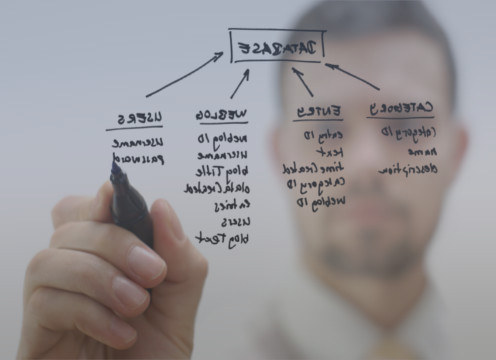 DATABASE
USERS
username
password
WEBLOG
weblog ID
username
blog Title
dataCreated
Entries
users
blog Text
ENTRY
entry ID
text
timeCreated
Category ID
Weblog ID
CATEGORY
Category ID
name
description